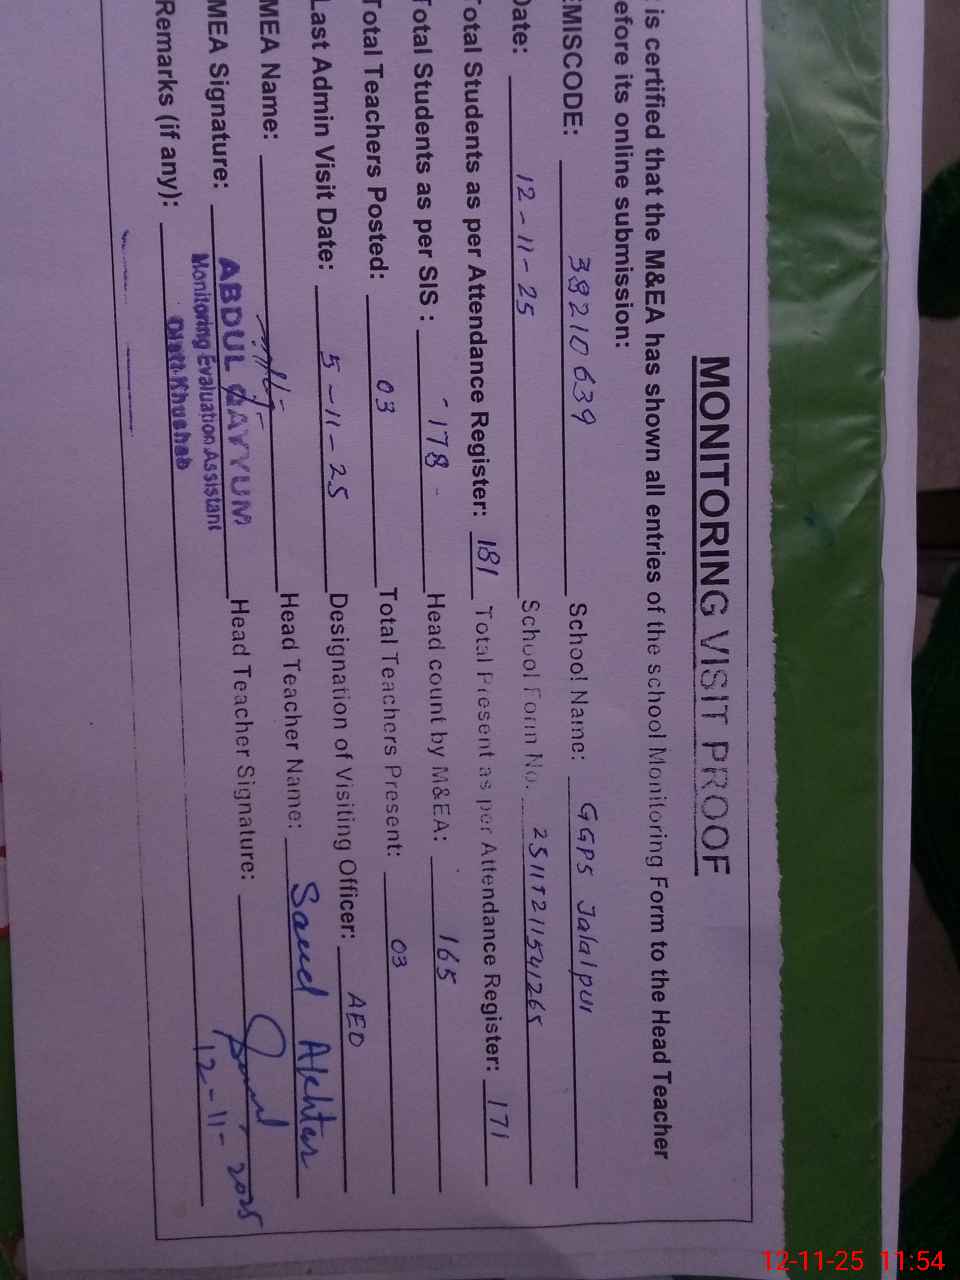 MONITORING VISIT PROOF
is certified that the M&EA has shown all entries of the school Monitoring Form to the Head Teacher
efore its online submission:
EMISCODE: 38210639 School Name: GGPS Jalalpur
Date: 12-11-25 School Form No. 
Total Students as per Attendance Register: 181 Total Present as per Attendance Register: 171
Total Students as per SIS: 178 Head count by M&EA: 165
Total Teachers Posted: 03 Total Teachers Present: 03
Last Admin Visit Date: 5-11-25 Designation of Visiting Officer: AEO
MEA Name: Head Teacher Name: Akhtar
MEA Signature: ABDUL QAYYUM Head Teacher Signature:
Monitoring Evaluation Assistant
Remarks (if any): Distt. Khushab 12-11-2025
12-11-25 11:54